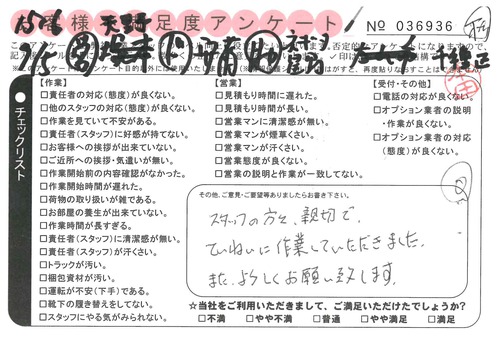 お客様満足度アンケート
No 036936
チェックリスト
【作業】
□責任者の対応(態度)が良くない。
□他のスタッフの対応(態度)が良くない。
□作業を見ていて不安がある。
□責任者(スタッフ)に好感が持てない。
□お客様への挨拶が出来ていない。
□ご近所への挨拶・気遣いが無い。
□作業開始前の内容確認がなかった。
□作業開始時間が遅れた。
□荷物の取り扱いが雑である。
□お部屋の養生が出来ていない。
□作業時間が長すぎる。
□責任者(スタッフ)に清潔感が無い。
□責任者(スタッフ)が汗くさい。
□トラックが汚い。
□梱包資材が汚い。
□運転が不安(下手)である。
□靴下の履き替えをしてない。
□スタッフにやる気がみられない。
【営業】
□見積もり時間に遅れた。
□見積もり時間が長い。
□営業マンに清潔感が無い。
□営業マンが煙草くさい。
□営業マンが汗くさい。
□営業態度が良くない。
□営業の説明と作業が一致してない。
【受付・その他】
□電話の対応が良くない。
□オプション業者の説明
・作業が良くない。
□オプション業者の対応
(態度)が良くない。
その他、ご意見・ご要望等ありましたらお書き下さい。
スタッフの方々、親切で、
ていねいに作業していただきました。
また、よろしくお願い致します。
☆当社をご利用いただきまして、ご満足いただけたでしょうか?
□不満 □やや不満 □普通 □やや満足 □満足